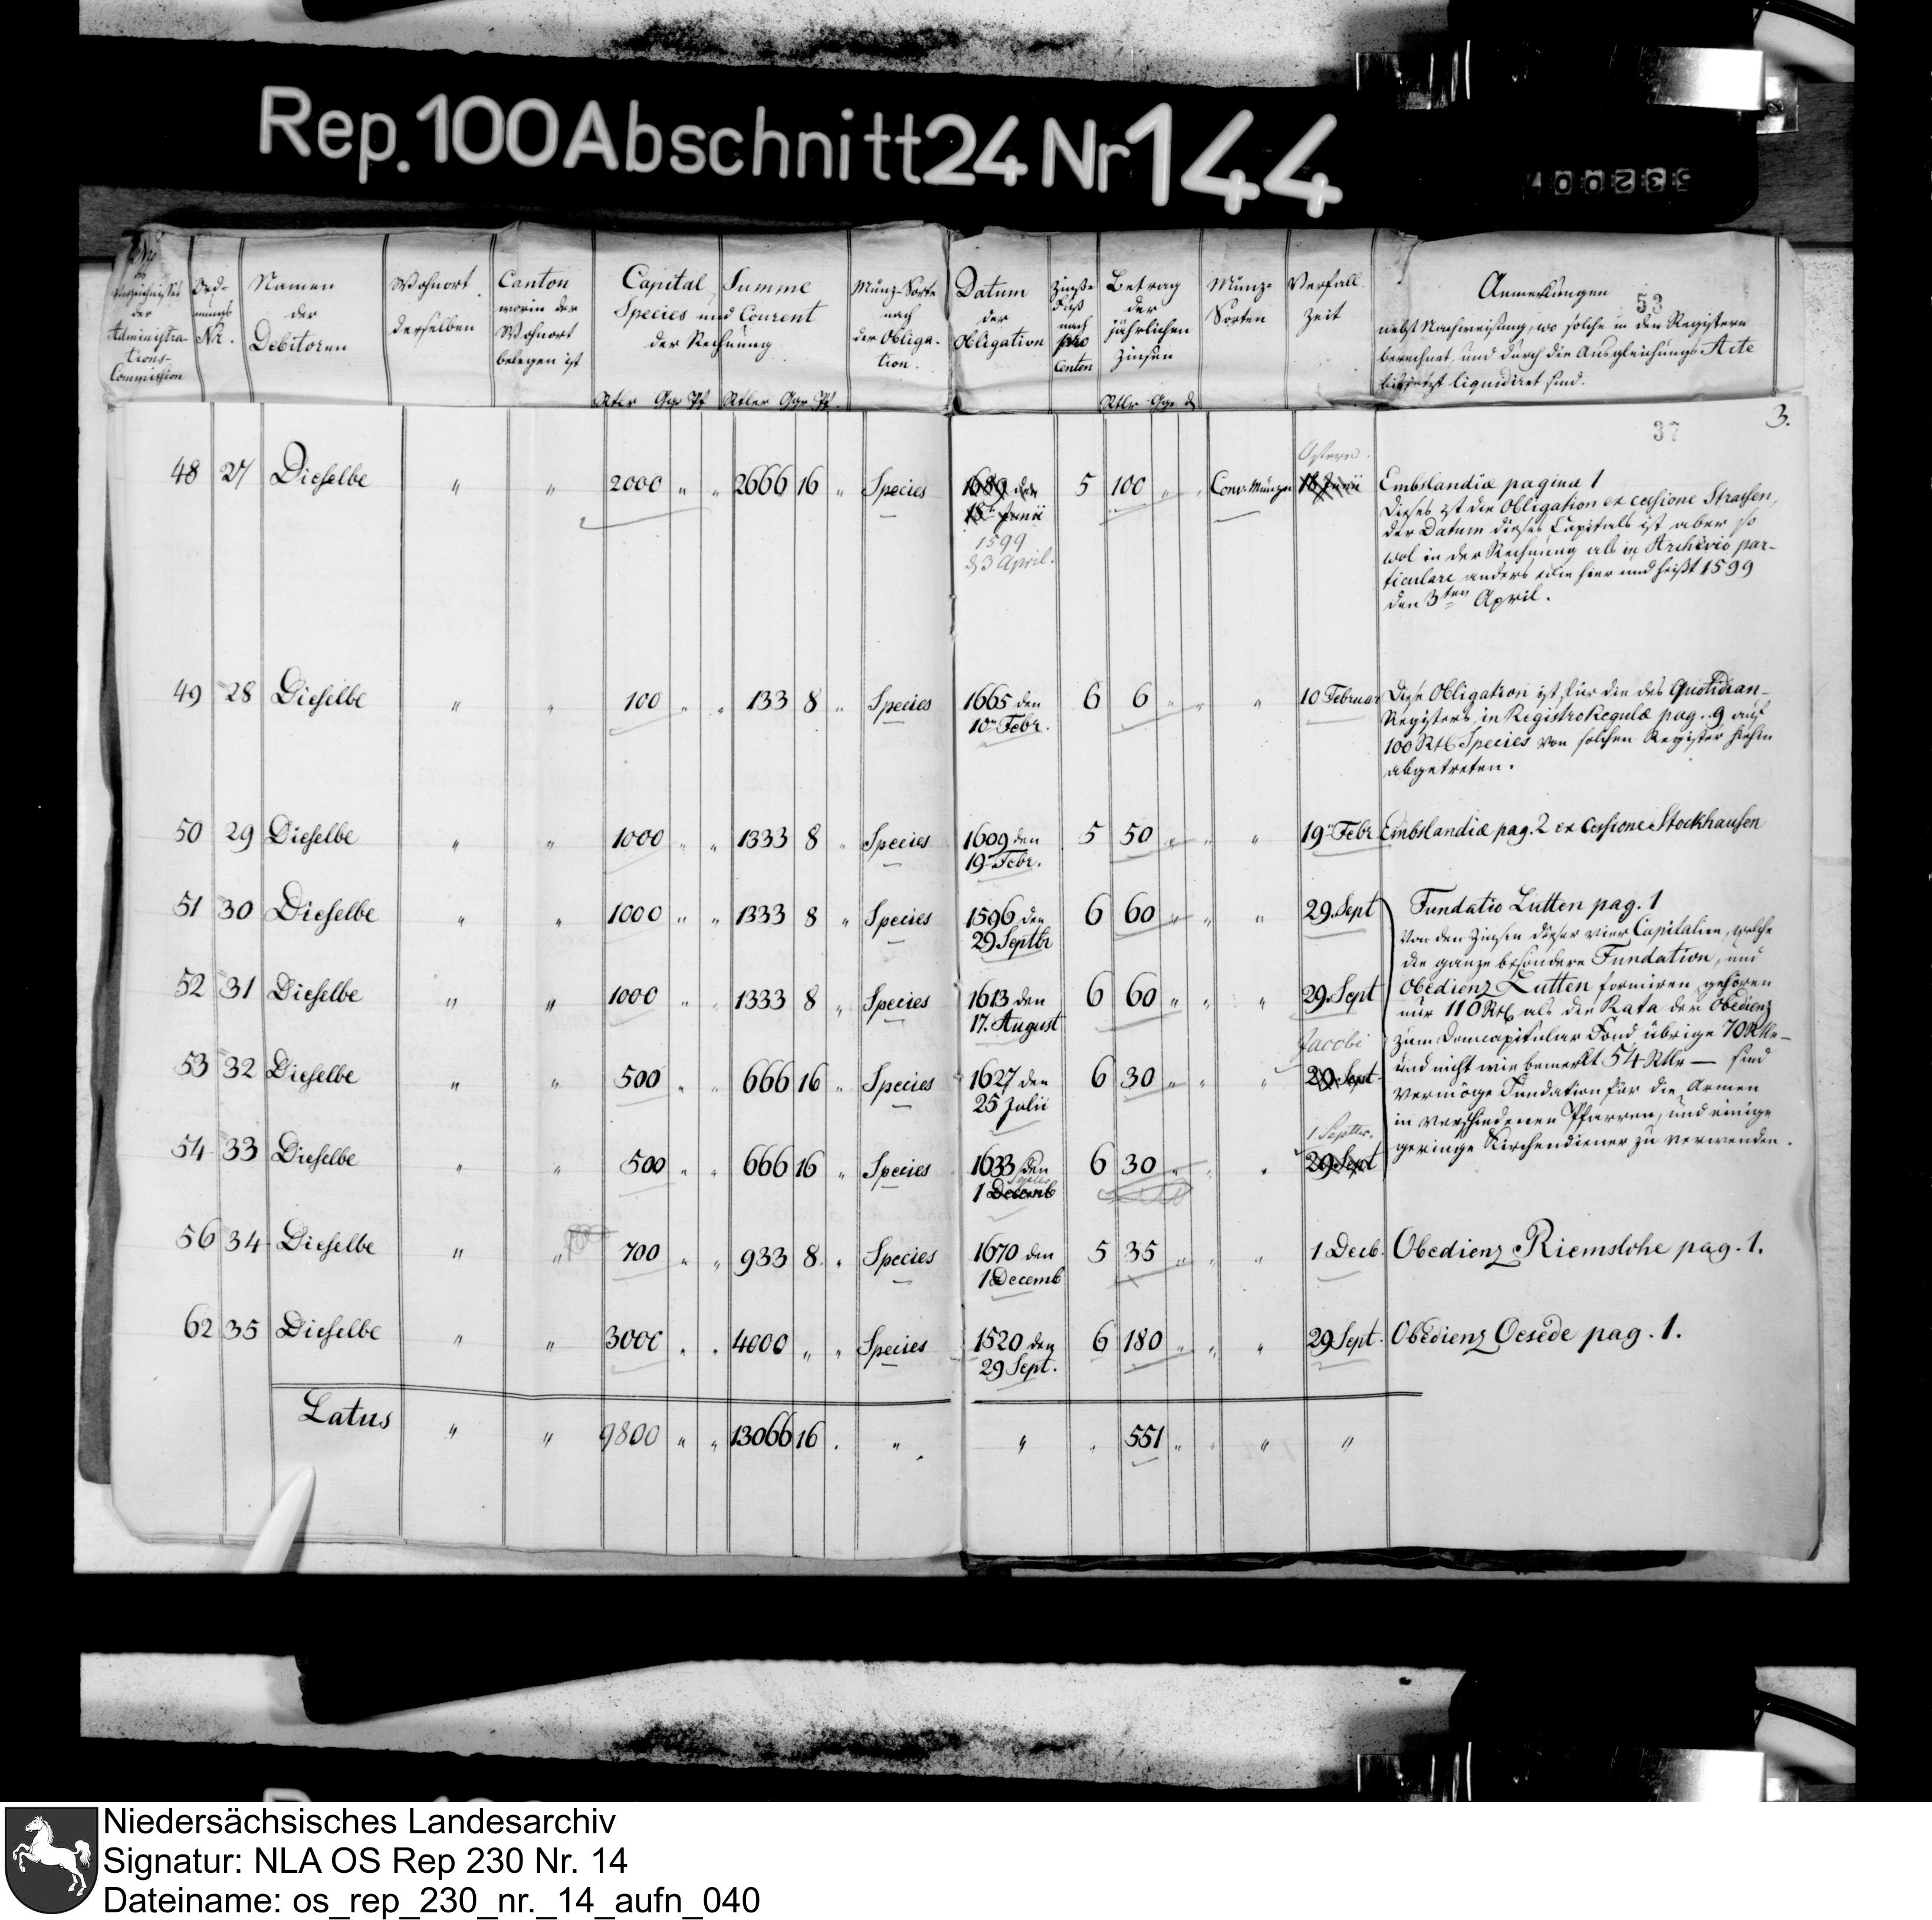 Rep. 100 Abschnitt 24 Nr 144
Nro
des
Verzeichnisses
der
Administra-
tions-
Commission
Ord-
nungs
Nr.
Namen
der
Debitoren
Wohnort
derselben
Canton
worin der
Wohnort
belegen ist
Capital Summe
Species und Courent
der Rechnung
Rtlr Ggr Pf Rtler Ggr Pf.
Münz-Sorte
nach
der Obliga-
tion.
Datum
der
Obligation
Zinße
Fuß
nach
pro
Centen
Betrag
der
jährlichen
Zinsen
Rtlr Ggr d
Münz-
Sorten
Verfall
Zeit
Anmerkungen
53
nebst Nachweisung, wo solche in den Registern
berechnet, und durch die Ausgleichungs Acte
liquidiret sind.
37
3.
Ostern.
48 27 Dieselbe " " 2000 " " 2666 16 " Species 1689 den 5 100 " " Conv. Münze 18 Junii
18ten Junii
1599
d 3 April.
Embslandiæ pagina 1
Dieses ist die Obligation ex cessione Strassen,
der Datum dieses Capitals ist aber so
wol in der Rechnung als in Archivio par-
ticulare anders wie hier und heißt 1599
den 3ten April.
49 28 Dieselbe " " 100 " " 133 8 " Species 1665 den 6 6 " " " 10 Februar
10ten Febr.
Diese Obligation ist für die des Quotidian-
Registers in Registro Regulæ pag. 9 auf
100 Rtl Species von solchen Register hiehin
abgetreten.
50 29 Dieselbe " " 1000 " " 1333 8 " Species 1609 den 5 50 " " " 19ten Febr Embslandiæ pag. 2 ex Cessione Stockhausen
19 Febr.
51 30 Dieselbe " " 1000 " " 1333 8 " Species 1596 den 6 60 " " " 29. Sept
29 Septbr
52 31 Dieselbe " " 1000 " " 1333 8 " Species 1613 den 6 60 " " " 29. Sept
17. August
Jacobi
53 32 Dieselbe " " 500 " " 666 16 " Species 1627 den 6 30 " " " 29. Sept
25 Julii
1. Septbr.
54 33 Dieselbe " " 500 " " 666 16 " Species 1633 den 6 30 " " " 29 Sept
Septbr
1 Decemb
Fundatio Lutten pag. 1
Von den Zinsen dieser vier Capitalien, welche
die ganze besondere Fundation, und
Obedienz Lutten formiren, gehören
nur 110 Rtl als die Rata der Obedienz
zum Domcapitular Fond, übrige 70 Rtlr –
und nicht wie bemerkt 54 Rtlr — sind
vermöge Fundation für die Armen
in verschiedenen Pfarren, und einige
geringe Kirchendiener zu verwenden.
56 34 Dieselbe " " 700 " " 933 8 " Species 1670 den 5 35 " " " 1 Decb. Obedienz Riemslohe pag. 1.
1 Decemb
62 35 Dieselbe " " 3000 " " 4000 " " Species 1520 den 6 180 " " " 29 Sept. Obedienz Oesede pag. 1.
29 Sept.
Latus " " 9800 " " 13066 16 . " " . 551 " " " "
Niedersächsisches Landesarchiv
Signatur: NLA OS Rep 230 Nr. 14
Dateiname: os_rep_230_nr._14_aufn_040